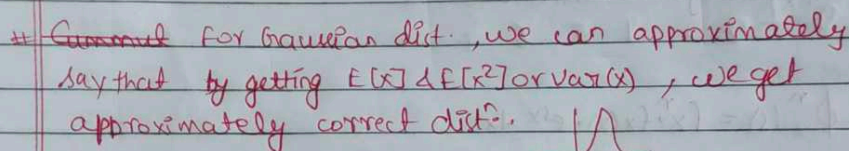 # For Gaussian dist., we can approximately
say that by getting E[x] & E[x²] or var(x), we get
approximately correct distⁿ.